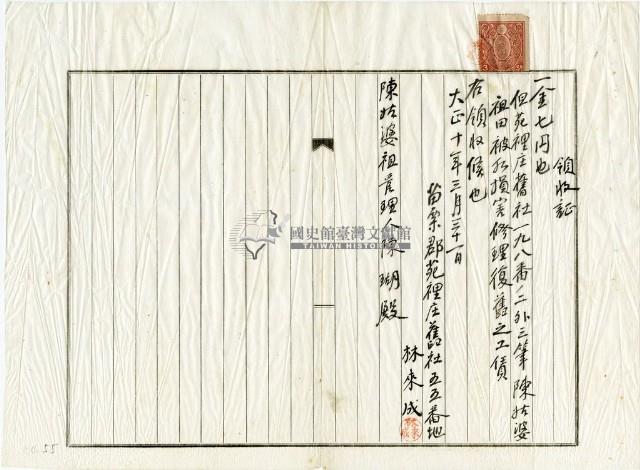 領收証
一金七円也
但苑裡庄舊社一九八番ノ二外三筆陳姑婆
祖田被水損害修理復舊之工賃
右領收候也
大正十年三月三十一日
苗栗郡苑裡庄舊社五五番地
林來成
陳姑婆祖管理人陳瑚殿
國史館臺灣文獻館
TAIWAN HISTORICA
55